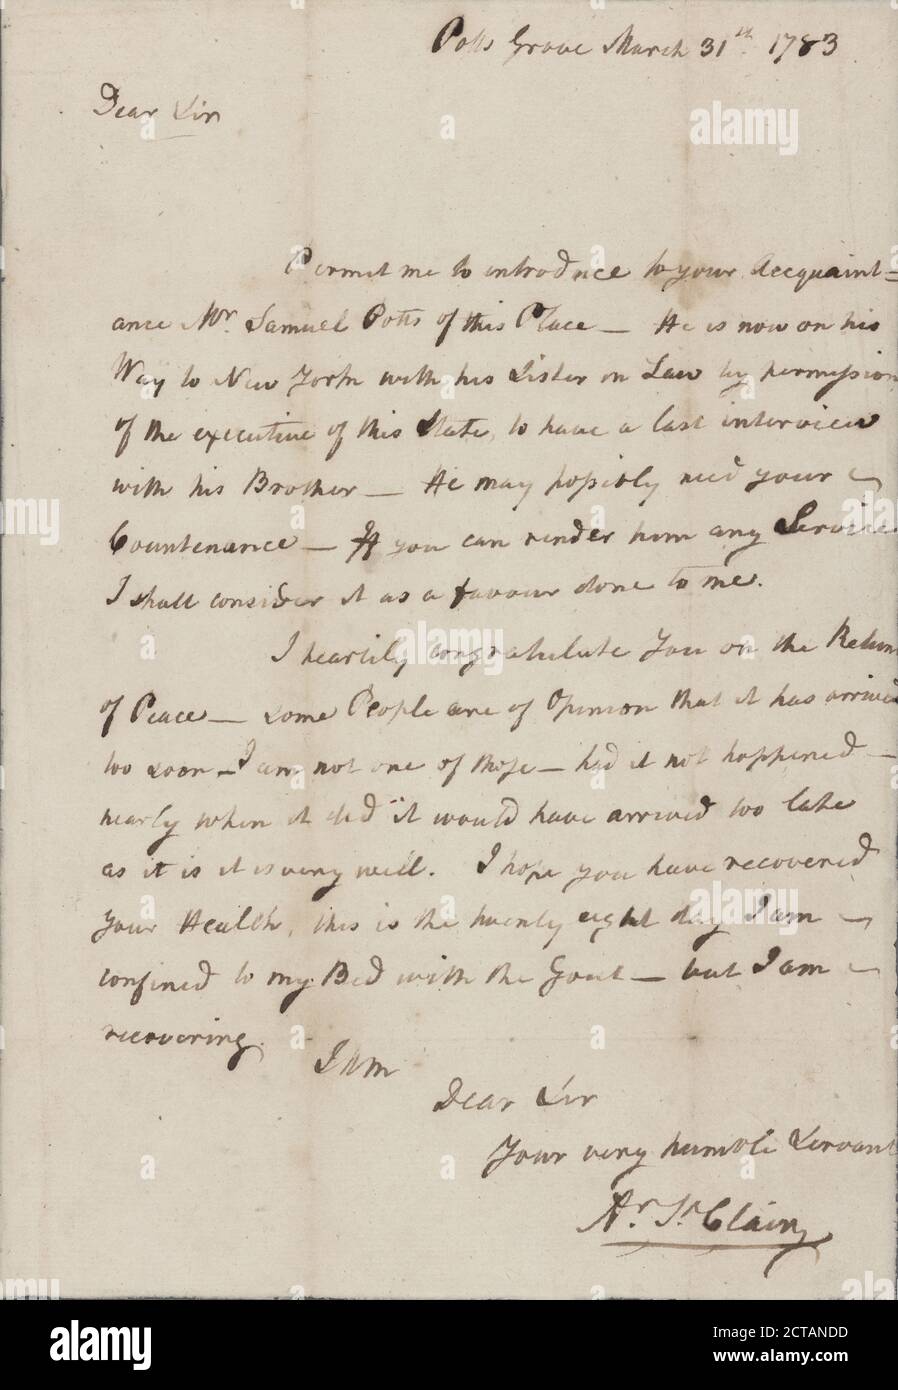 Potts Grove March 31th 1783
Dear Sir
Permit me to introduce to your Acquaint=
ance Mr. Samuel Potts of this Place — He is now on his
Way to New York with his Sister in Law by permission
of the executive of this State, to have a last interview
with his Brother — He may possibly need your
Countenance — If you can render him any Service
I shall consider it as a favour done to me.
I heartily congratulate you on the Return
of Peace — some People are of Opinion that it has arrived
too soon — I am not one of those — had it not happened —
nearly when it did it would have arrived too late
as it is it is very well. I hope you have recovered
your Health, this is the twenty eight day I am
confined to my Bed with the Gout — but I am
recovering.
I am
Dear Sir
Your very humble Servant
Ar. St. Clair
alamy
Image ID: 2CTANDD
www.alamy.com